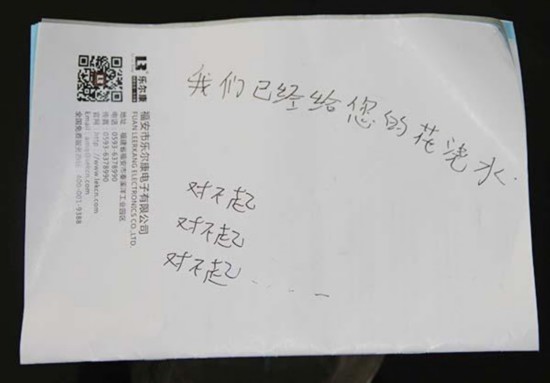 我们已经给您的花浇水
对不起
对不起
对不起......
乐尔康
福安市乐尔康电子有限公司
FUAN LEERKANG ELECTRONICS CO.,LTD.
地址: 福建省福安市秦溪洋工业园区
电话: 0593-6378990
传真: 0593-6378990
网站: http://www.lekcn.com